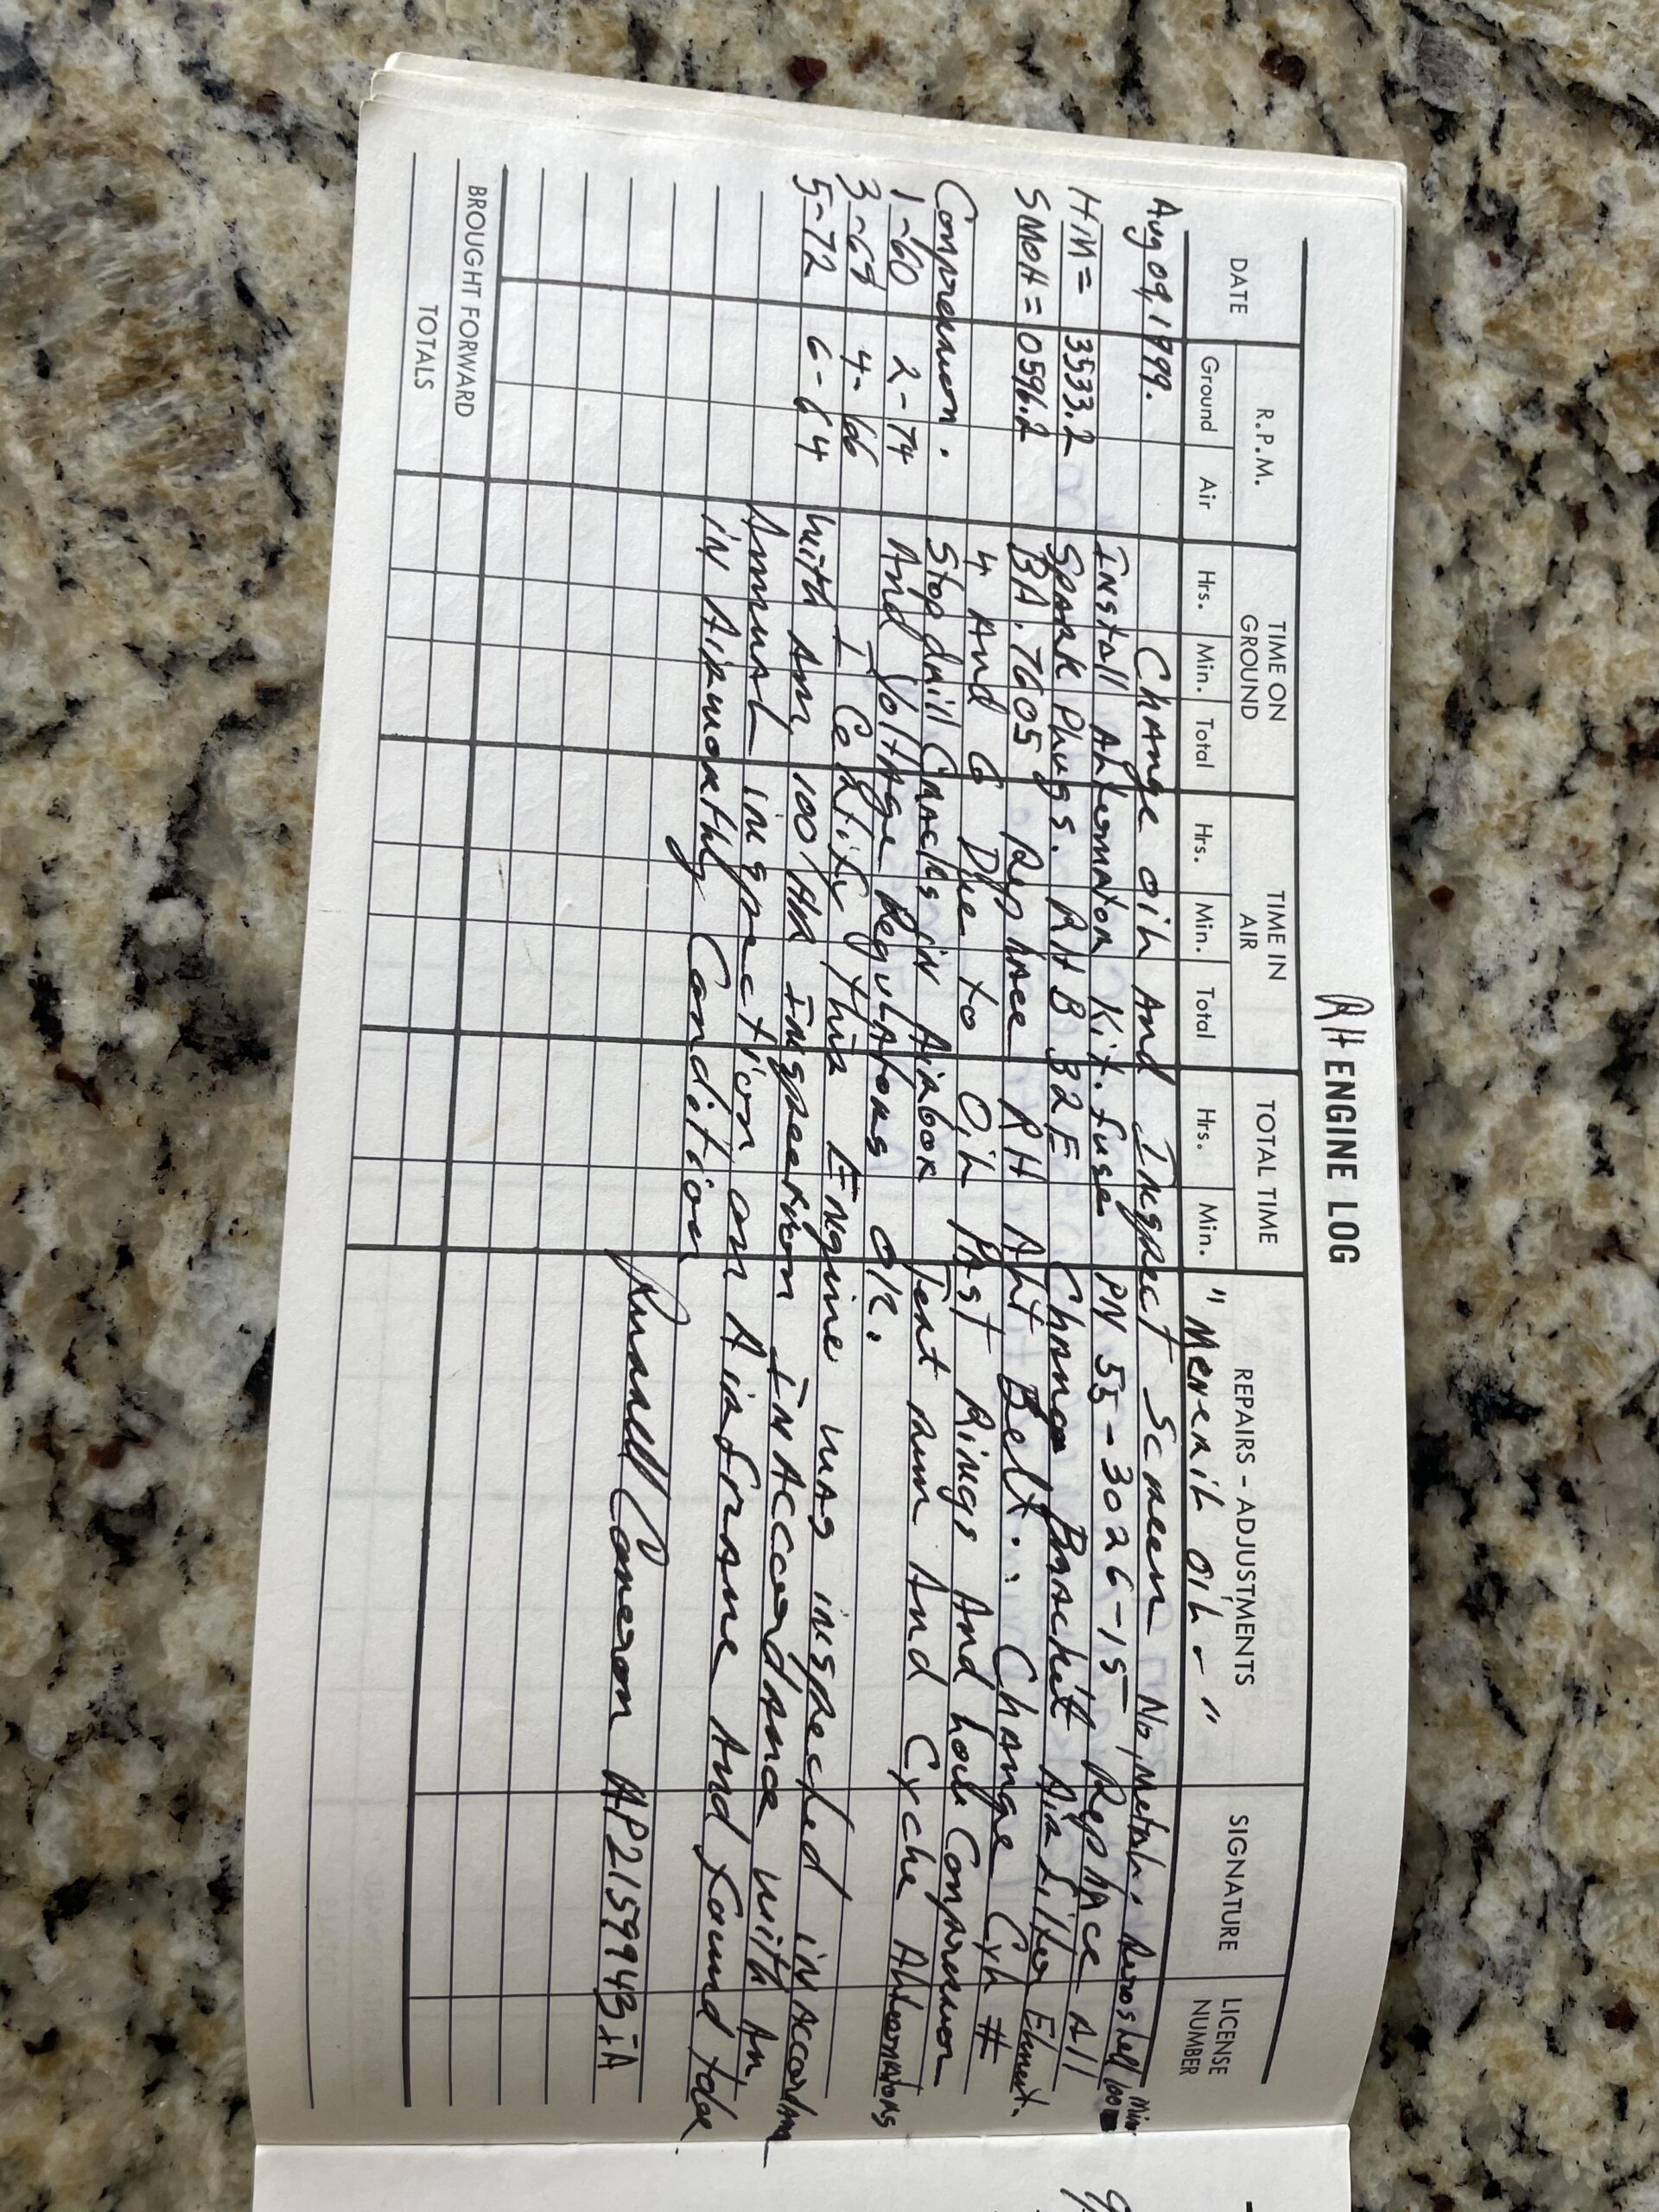 RH ENGINE LOG
DATE R.P.M. TIME ON GROUND TIME IN AIR TOTAL TIME REPAIRS - ADJUSTMENTS SIGNATURE LICENSE NUMBER
Ground Air Hrs. Min. Total Hrs. Min. Total Hrs. Min. " Meneril oil - "
Aug 09, 1999. Change oil And Inspect Screen No, Metal. Aeroshell 100 Min
Install Alternator Kit. fuse PN 55-3026-15 Replace All
HM= 3533.2 Spark Plugs. RHB 32E Change Brackett Air Filter Element.
SMOH = 0596.2 BA. 7605. Replace RH Alt Belt. Change Cyl #
4 And 6 Due to Oil Past Rings And how Compression
Compression. Stop drill Cracks in Airbox Test run And Cycle Alternators
1-60 2-74 And Voltage Regulators OK.
3-69 4-66 I Certify this Engine was inspected in Accordance
5-72 6-64 with An 100/HR Inspection IN Accordance with An
Annual inspection on Airframe And found to be
IN Airworthy Condition
Russell Cameron AP2159943IA
BROUGHT FORWARD
TOTALS